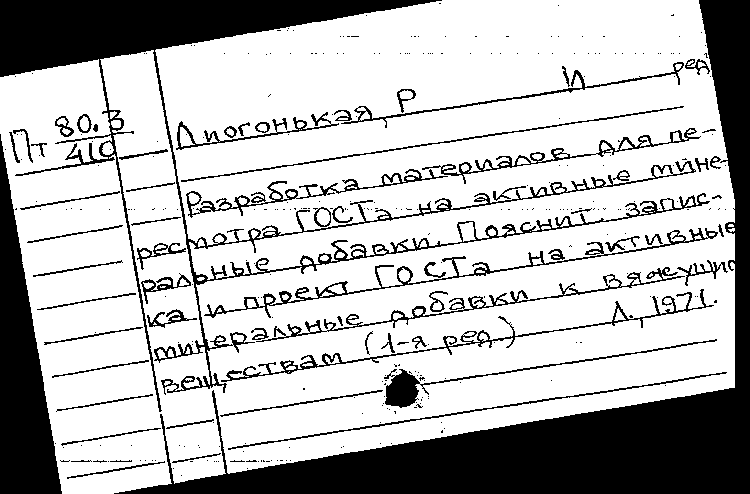 Пт 80.3/410 Лиогонькая, Р И ред
Разработка материалов для пе-
ресмотра ГОСТа на активные мине-
ральные добавки. Пояснит. запис-
ка и проект ГОСТа на активные
минеральные добавки к вяжущи
веществам (1-я ред.) Л., 1971.